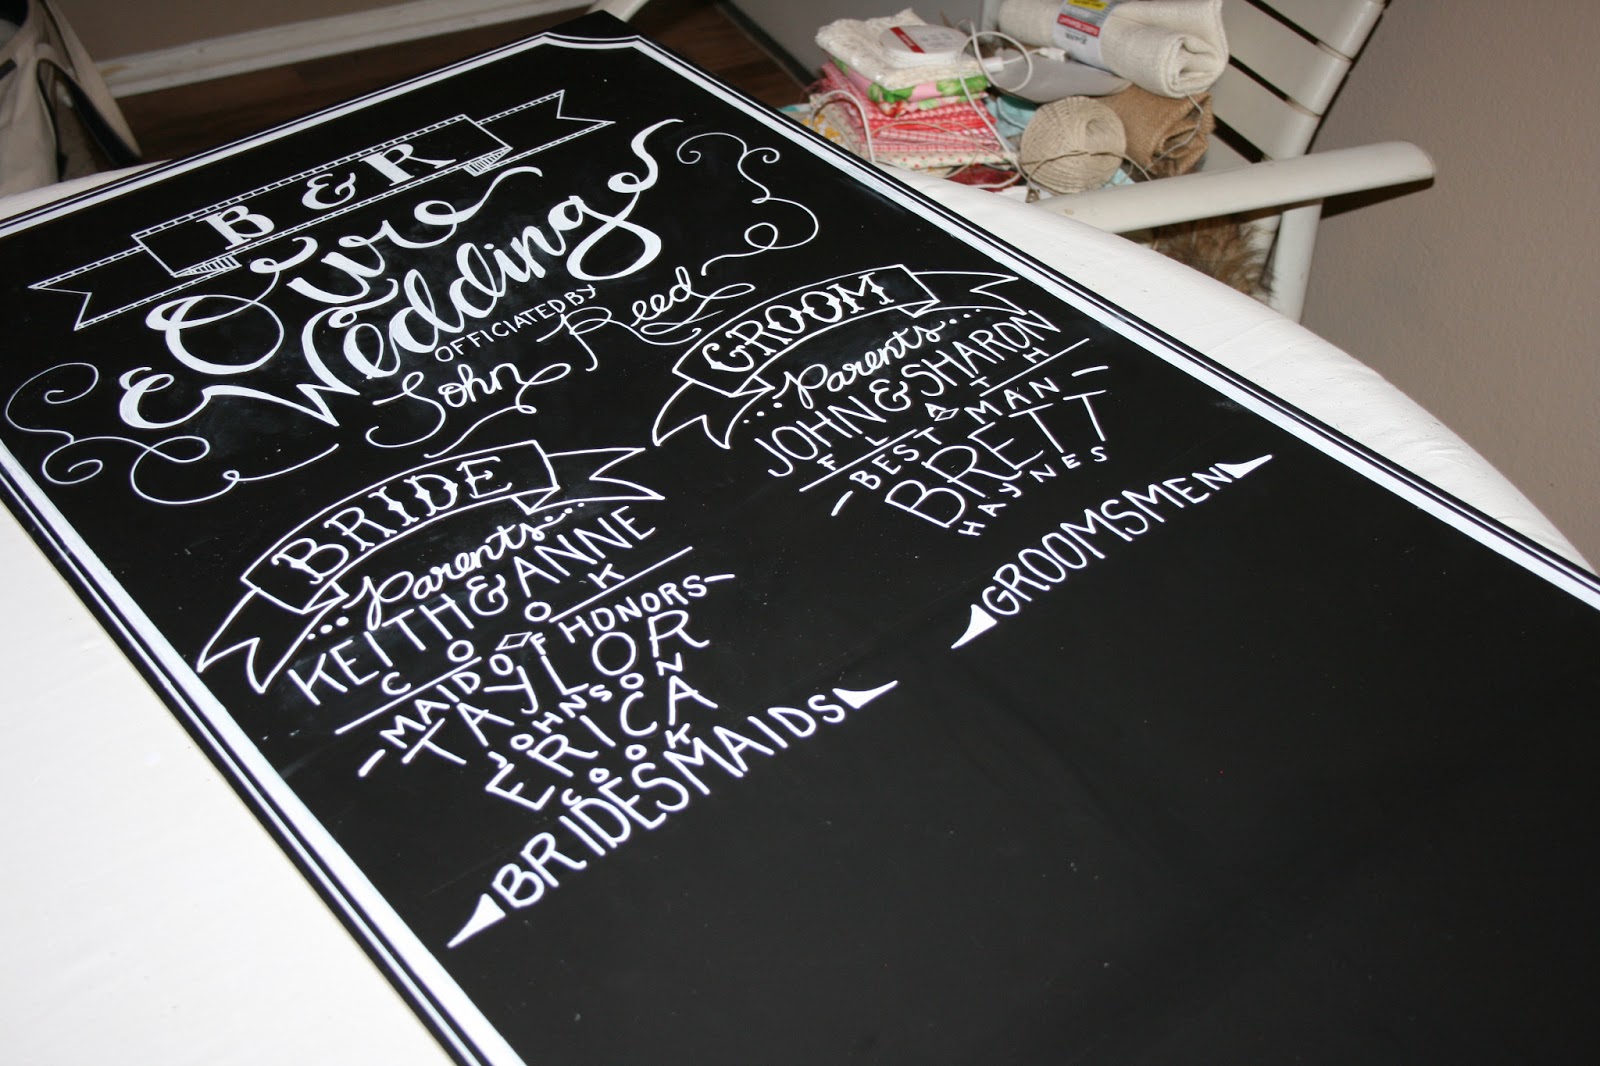 B & R
Our
Wedding
OFFICIATED BY
John Reed
BRIDE
...Parents...
KEITH & ANNE
COOK
-MAID OF HONORS-
TAYLOR
JOHNSON
ERICA
COOK
BRIDESMAIDS
GROOM
...Parents...
JOHN & SHARON
FLATH
-BEST MAN-
BRETT
HAYNES
GROOMSMEN